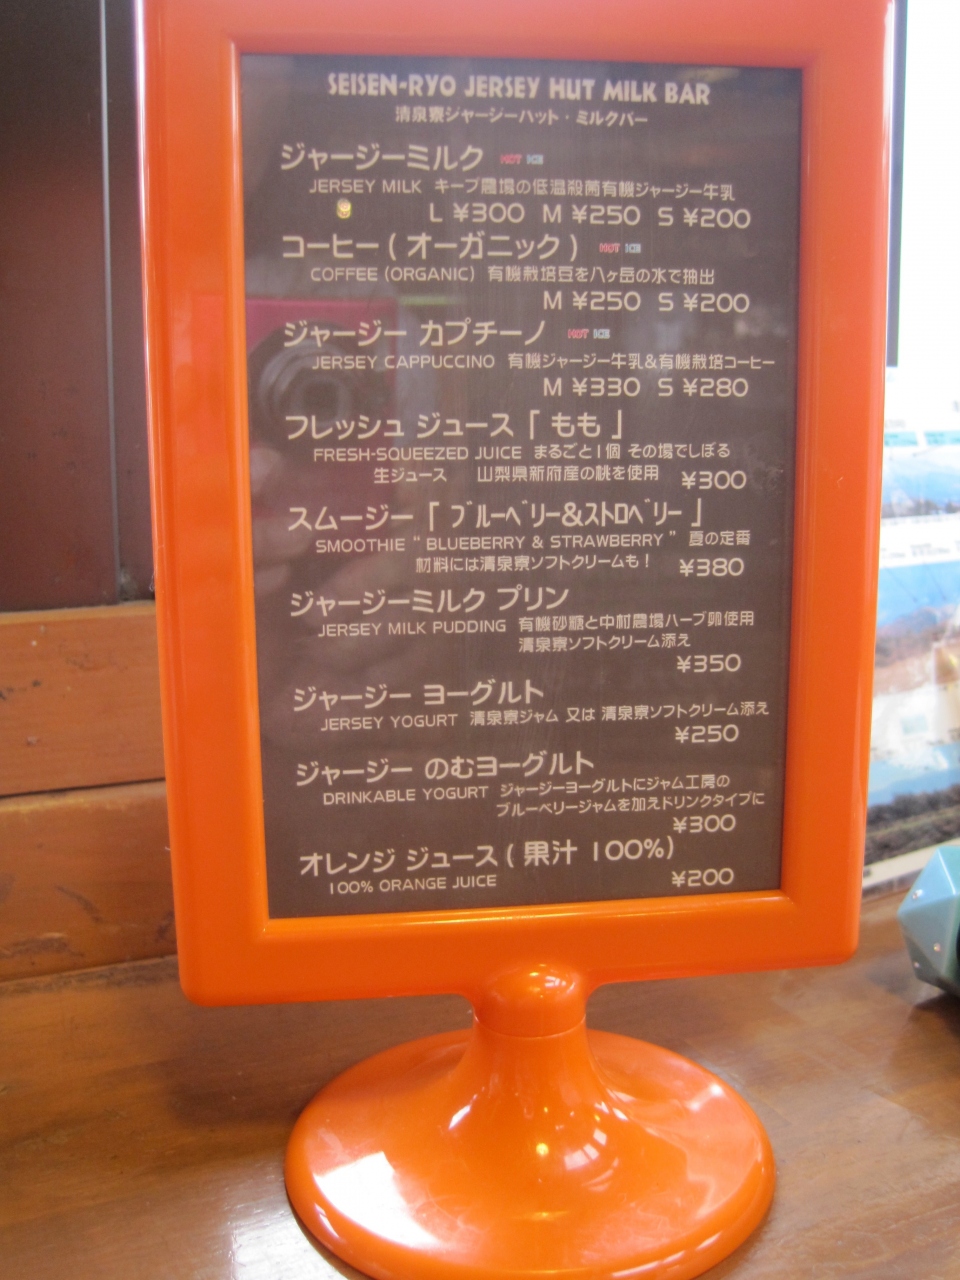 SEISEN-RYO JERSEY HUT MILK BAR
清泉寮ジャージーハット・ミルクバー
ジャージーミルク HOT ICE
JERSEY MILK キープ農場の低温殺菌有機ジャージー牛乳
L ¥300 M ¥250 S ¥200
コーヒー ( オーガニック ) HOT ICE
COFFEE (ORGANIC) 有機栽培豆を八ヶ岳の水で抽出
M ¥250 S ¥200
ジャージー カプチーノ HOT ICE
JERSEY CAPPUCCINO 有機ジャージー牛乳&有機栽培コーヒー
M ¥330 S ¥280
フレッシュ ジュース 「 もも 」
FRESH-SQUEEZED JUICE まるごと1個 その場でしぼる
生ジュース 山梨県新府産の桃を使用 ¥300
スムージー 「 ブルーベリー&ストロベリー 」
SMOOTHIE “ BLUEBERRY & STRAWBERRY ” 夏の定番
材料には清泉寮ソフトクリームも! ¥380
ジャージーミルク プリン
JERSEY MILK PUDDING 有機砂糖と中村農場ハーブ卵使用
清泉寮ソフトクリーム添え
¥350
ジャージー ヨーグルト
JERSEY YOGURT 清泉寮ジャム 又は 清泉寮ソフトクリーム添え
¥250
ジャージー のむヨーグルト
DRINKABLE YOGURT ジャージーヨーグルトにジャム工房の
ブルーベリージャムを加えドリンクタイプに
¥300
オレンジ ジュース ( 果汁 100%)
100% ORANGE JUICE ¥200